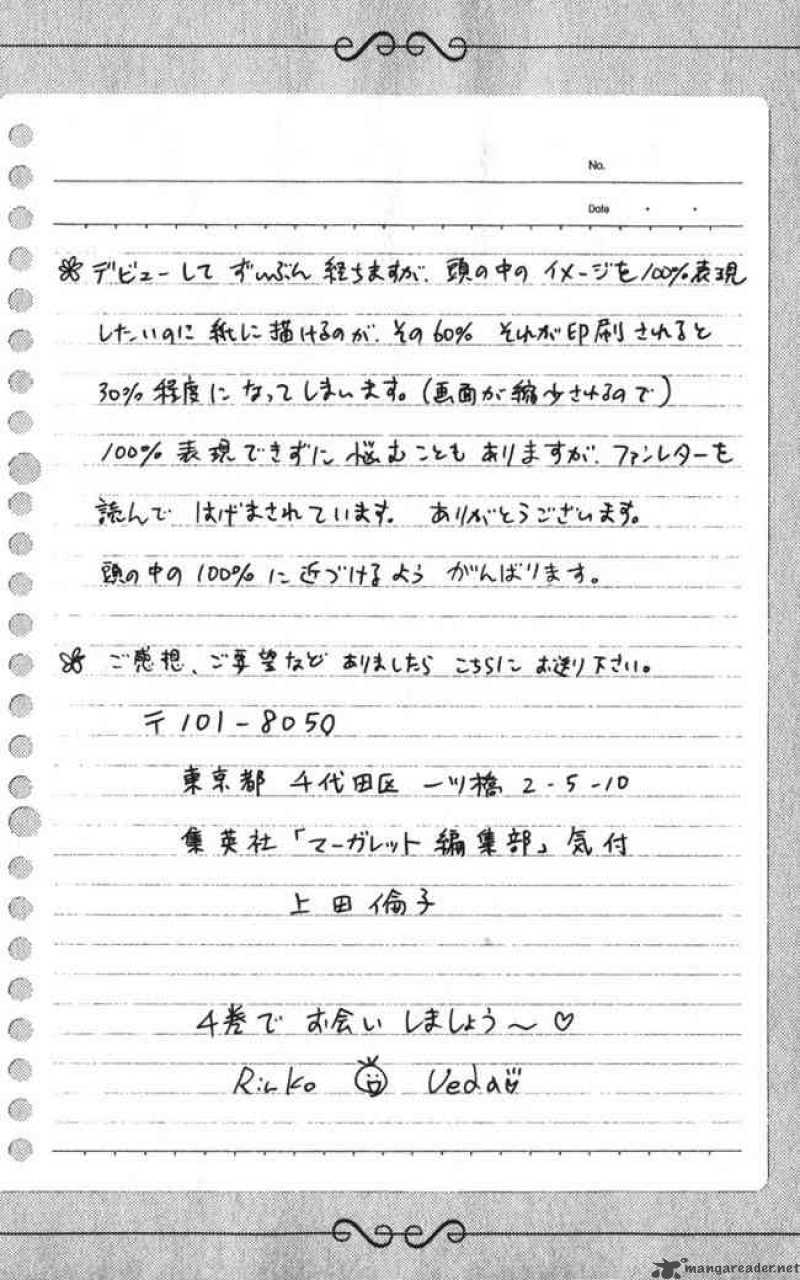 No.
Date ・ ・
デビューして ずいぶん 経ちますが、頭の中の イメージを100%表現
したいのに 紙に描けるのが、その60% それが印刷されると
30%程度に なってしまいます。(画面が縮少させるので)
100% 表現できずに 悩むことも ありますが、ファンレターを
読んで はげまされています。 ありがとうございます。
頭の中の100%に近づけるよう がんばります。
ご感想、ご要望など ありましたら こちらに お送り下さい。
〒101-8050
東京都 千代田区 一ツ橋 2-5-10
集英社「マーガレット 編集部」気付
上田倫子
4巻で お会い しましょう〜♡
Rinko Ueda
mangareader.net